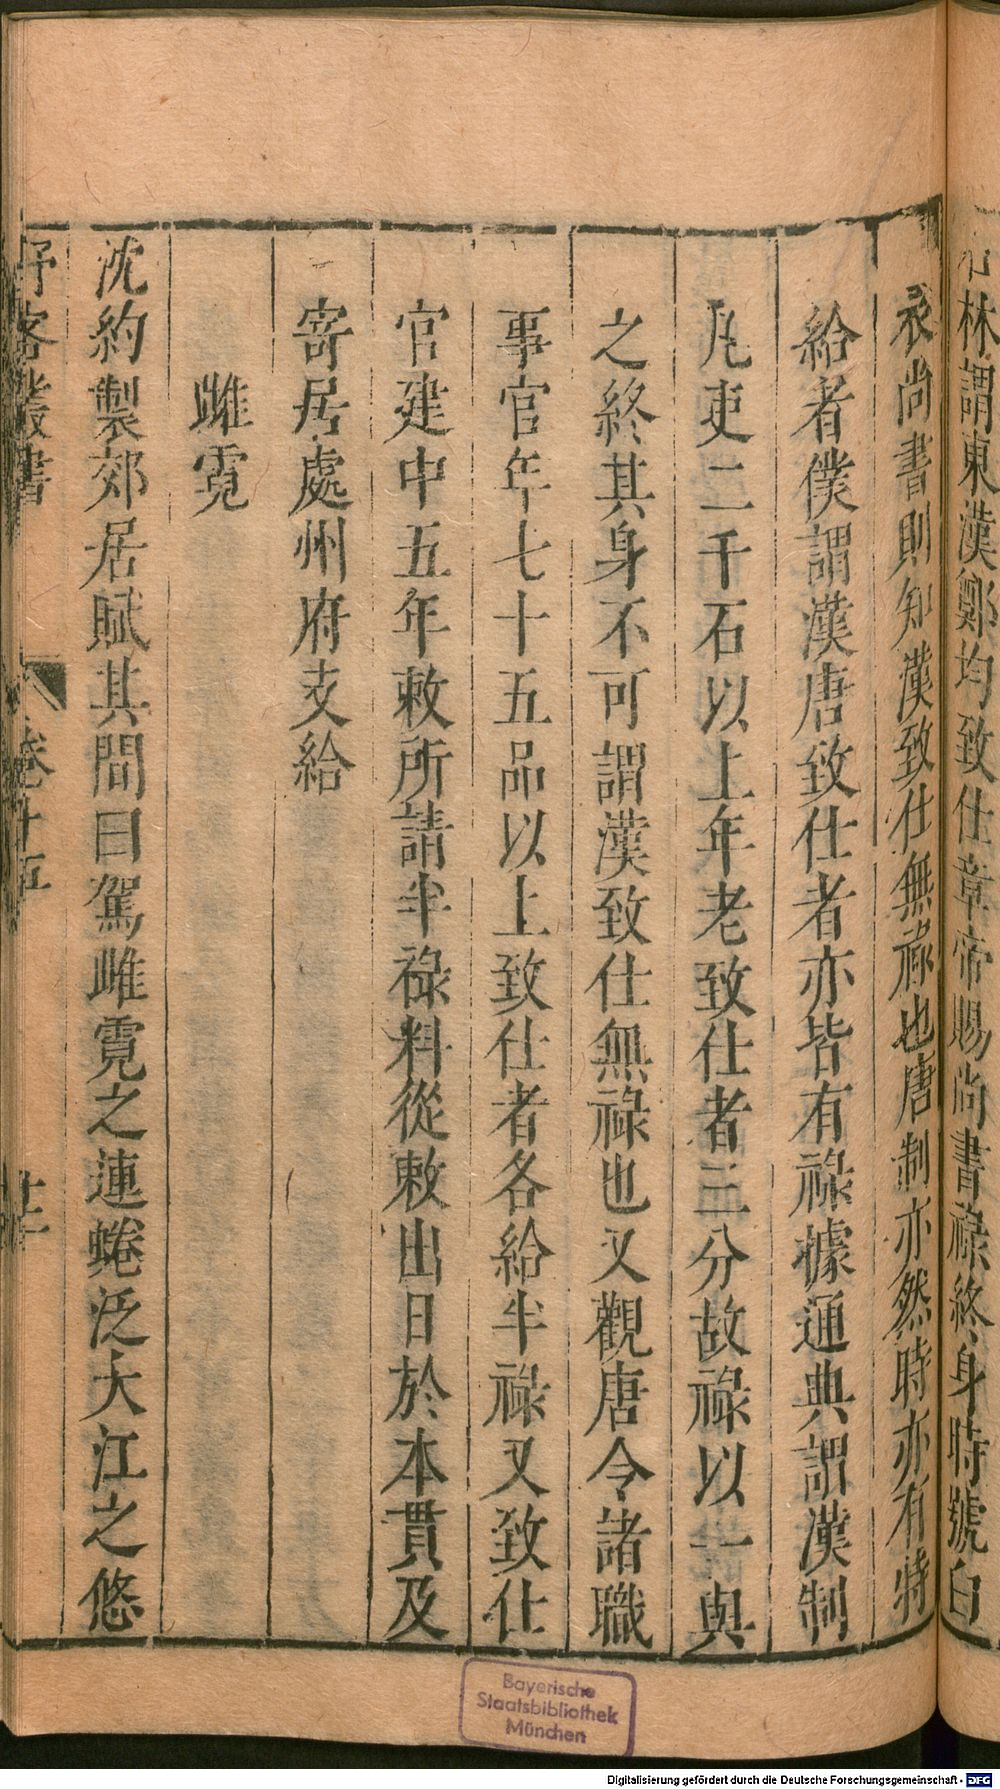 石林謂東漢鄭均致仕章帝賜尚書祿終身時號白
衣尚書則知漢致仕無祿也唐制亦然時亦有特
給者僕謂漢唐致仕者亦皆有祿據通典謂漢制
凡吏二千石以上年老致仕者三分故祿以一與
之終其身不可謂漢致仕無祿也又觀唐令諸職
事官年七十五品以上致仕者各給半祿又致仕
官建中五年敕所請半祿料從敕出日於本貫及
寄居處州府支給
雌霓
沈約製郊居賦其間曰駕雌霓之連蜷泛大江之悠
野客叢書
卷十五
十二
Bayerische
Staatsbibliothek
München
Digitalisierung gefördert durch die Deutsche Forschungsgemeinschaft - DFG